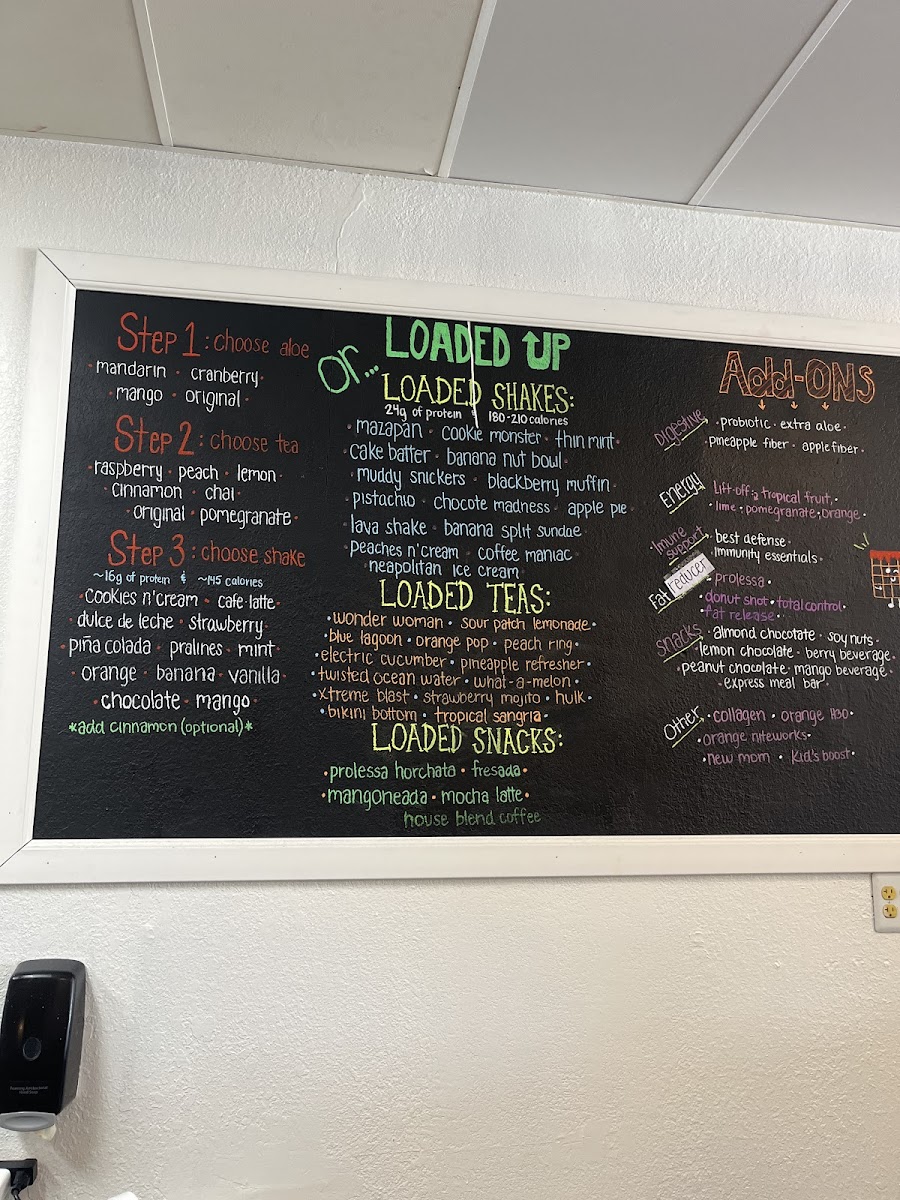 Step 1: choose aloe
mandarin · cranberry
mango · original
Step 2: choose tea
raspberry · peach · lemon
cinnamon · chai
original · pomegranate
Step 3: choose shake
~16g of protein & ~145 calories
cookies n'cream · cafe latte
dulce de leche · strawberry
piña colada · pralines · mint
orange · banana · vanilla
chocolate · mango
*add cinnamon (optional)*
Or...
LOADED UP
LOADED SHAKES:
24g of protein & 180-210 calories
mazapan · cookie monster · thin mint
cake batter · banana nut bowl
muddy snickers · blackberry muffin
pistachio · chocote madness · apple pie
lava shake · banana split sundae
peaches n'cream · coffee maniac
neapolitan ice cream
LOADED TEAS:
wonder woman · sour patch lemonade
blue lagoon · orange pop · peach ring
electric cucumber · pineapple refresher
twisted ocean water · what-a-melon
xtreme blast · strawberry mojito · hulk
bikini bottom · tropical sangria
LOADED SNACKS:
prolessa horchata · fresada
mangoneada · mocha latte
house blend coffee
Add-ONS
Digestive
probiotic · extra aloe
pineapple fiber · apple fiber
Energy
Lift-off: tropical fruit
lime · pomegranate · orange
Imune support
best defense
immunity essentials
Fat reducer
prolessa
donut shot · total control
fat release
snacks
almond chocotate · soy nuts
lemon chocolate · berry beverage
peanut chocolate · mango beverage
express meal bar
Other
collagen · orange H30
orange niteworks
new mom · Kid's boost